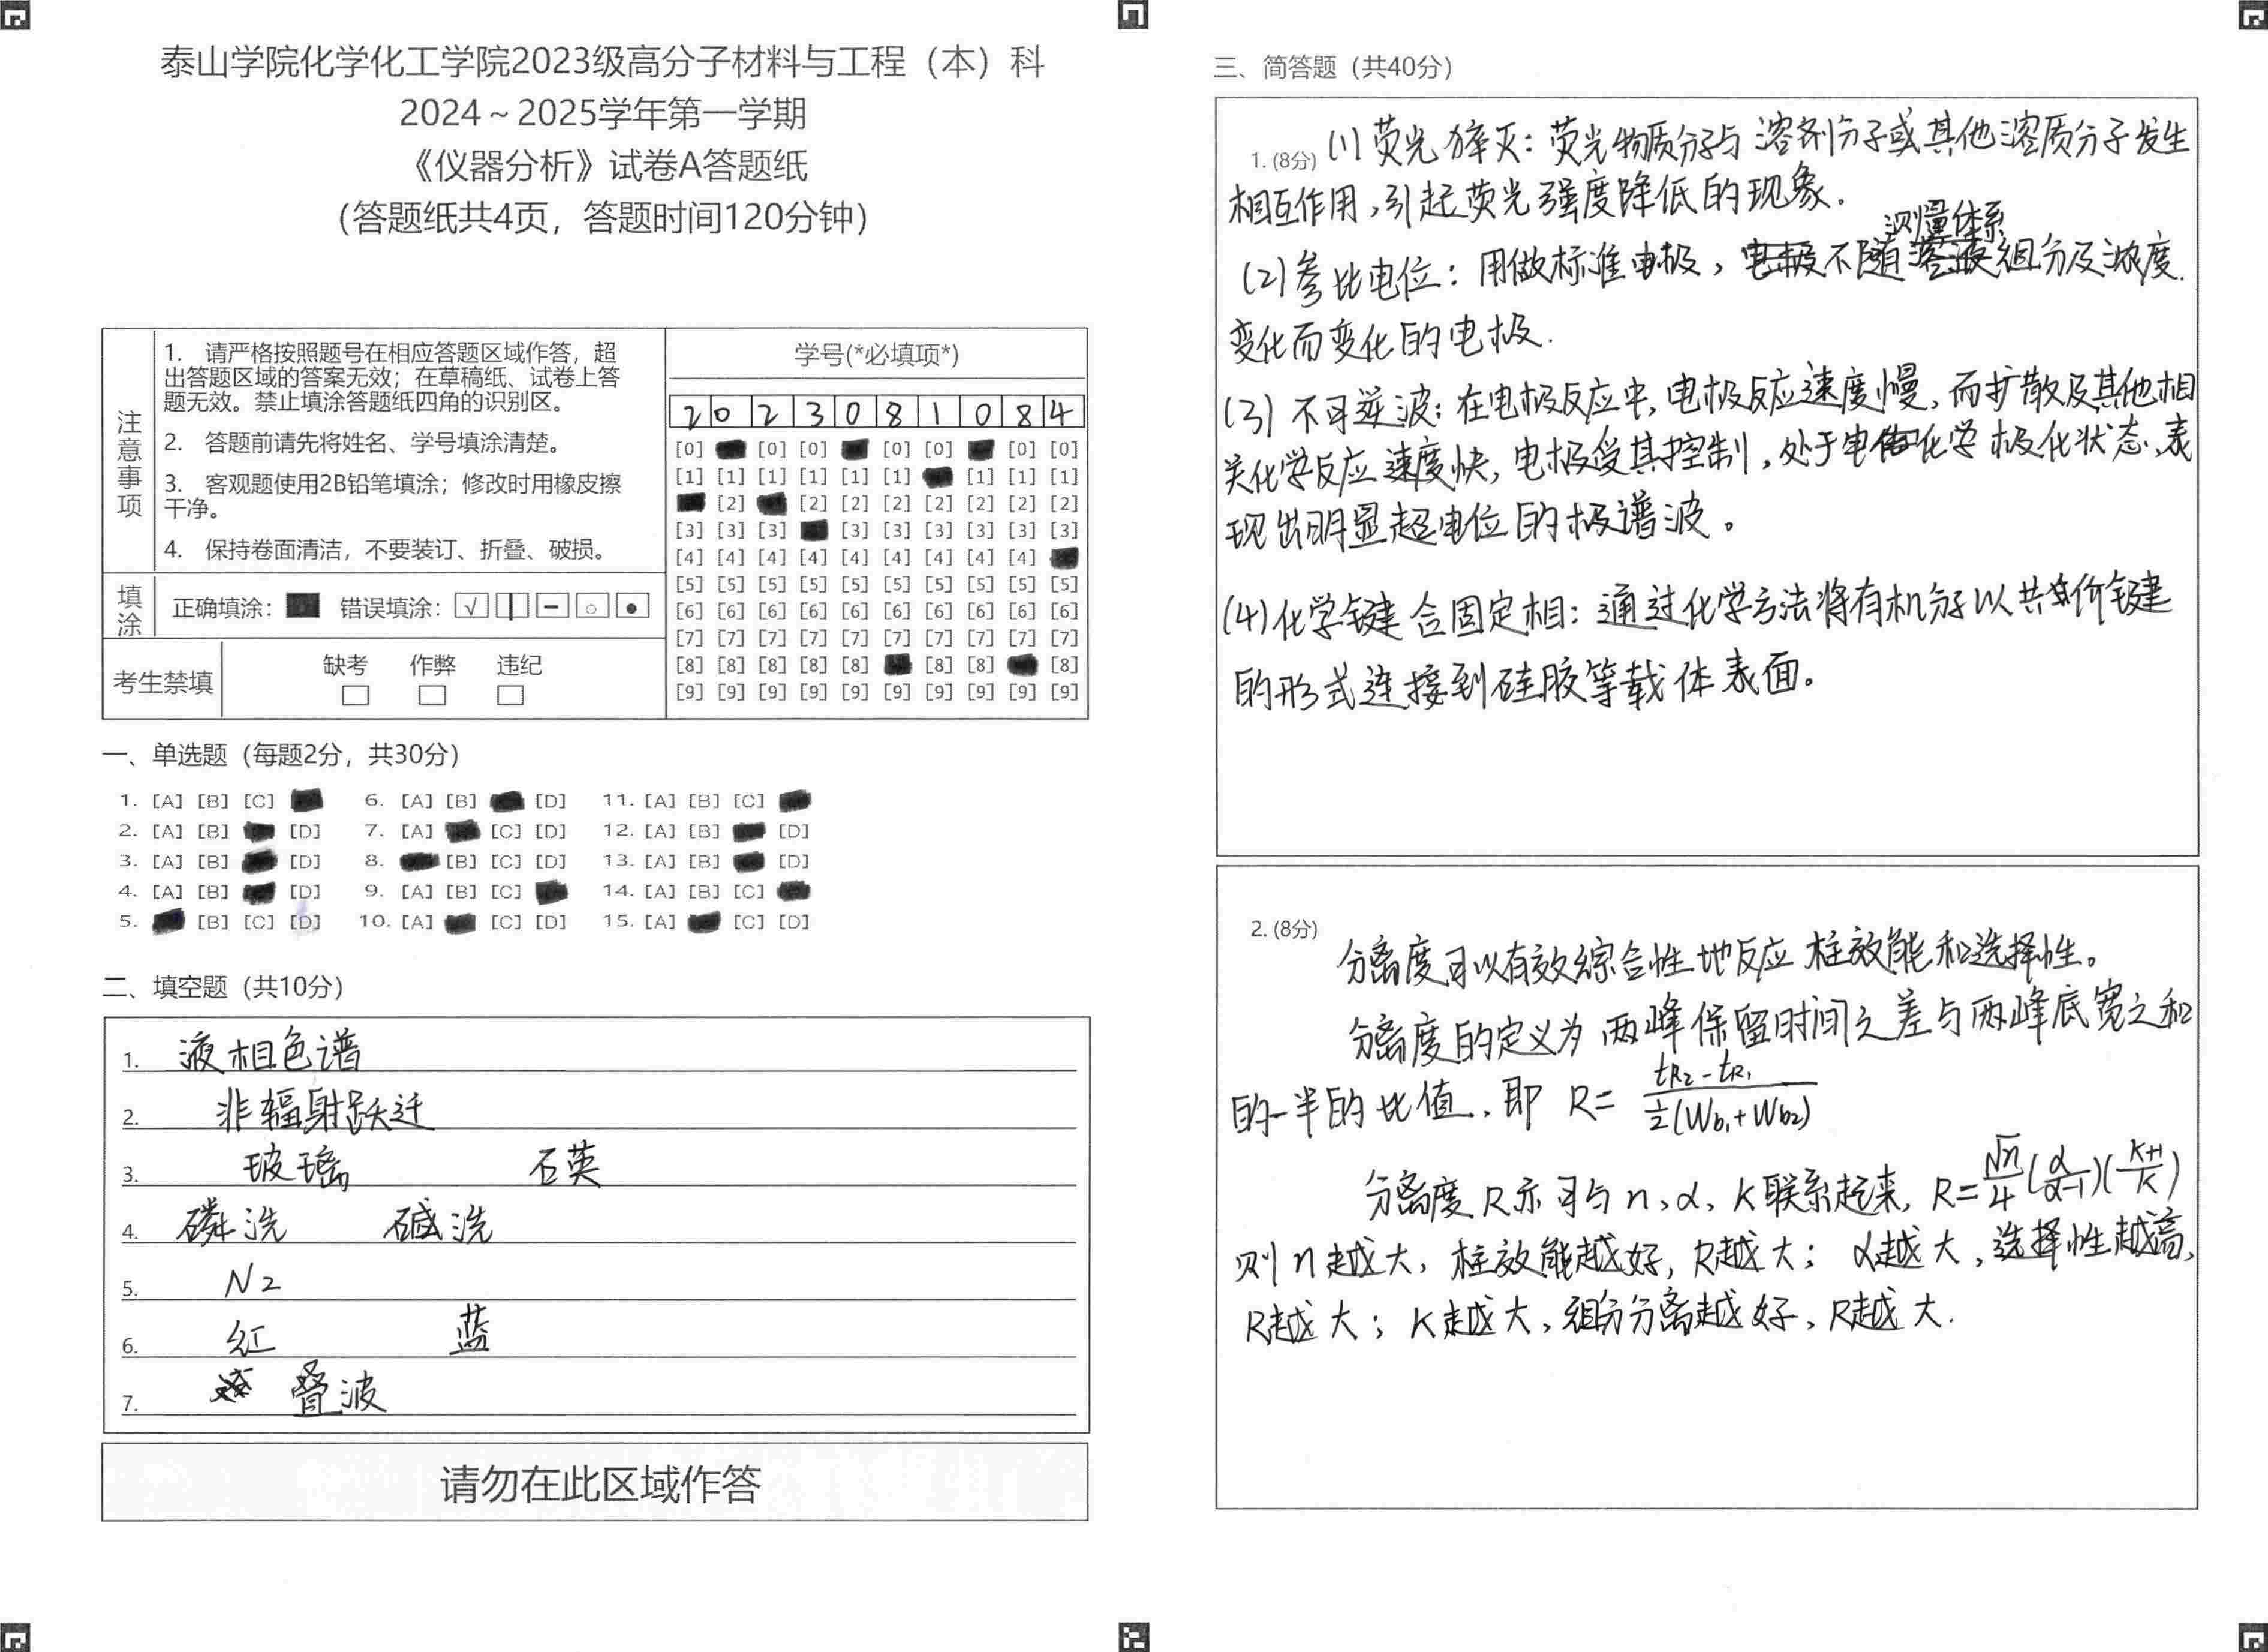 泰山学院化学化工学院2023级高分子材料与工程（本）科
2024～2025学年第一学期
《仪器分析》试卷A答题纸
（答题纸共4页，答题时间120分钟）
注意事项
1. 请严格按照题号在相应答题区域作答，超
出答题区域的答案无效；在草稿纸、试卷上答
题无效。禁止填涂答题纸四角的识别区。
2. 答题前请先将姓名、学号填涂清楚。
3. 客观题使用2B铅笔填涂；修改时用橡皮擦
干净。
4. 保持卷面清洁，不要装订、折叠、破损。
填涂
正确填涂： 错误填涂：
考生禁填
缺考 作弊 违纪
学号(*必填项*)
2 0 2 3 0 8 1 0 8 4
[0] [0] [0] [0] [0] [0] [0]
[1] [1] [1] [1] [1] [1] [1] [1] [1]
[2] [2] [2] [2] [2] [2] [2] [2]
[3] [3] [3] [3] [3] [3] [3] [3] [3]
[4] [4] [4] [4] [4] [4] [4] [4] [4]
[5] [5] [5] [5] [5] [5] [5] [5] [5] [5]
[6] [6] [6] [6] [6] [6] [6] [6] [6] [6]
[7] [7] [7] [7] [7] [7] [7] [7] [7] [7]
[8] [8] [8] [8] [8] [8] [8] [8]
[9] [9] [9] [9] [9] [9] [9] [9] [9] [9]
一、单选题（每题2分，共30分）
1. [A] [B] [C] 6. [A] [B] [D] 11. [A] [B] [C]
2. [A] [B] [D] 7. [A] [C] [D] 12. [A] [B] [D]
3. [A] [B] [D] 8. [B] [C] [D] 13. [A] [B] [D]
4. [A] [B] [D] 9. [A] [B] [C] 14. [A] [B] [C]
5. [B] [C] [D] 10. [A] [C] [D] 15. [A] [C] [D]
二、填空题（共10分）
1. 液相色谱
2. 非辐射跃迁
3. 玻璃 石英
4. 磷洗 碱洗
5. N2
6. 红 蓝
7. 叠波
请勿在此区域作答
三、简答题（共40分）
1. (8分) (1) 荧光猝灭：荧光物质分子与溶剂分子或其他溶质分子发生
相互作用，引起荧光强度降低的现象．
(2) 参比电位：用做标准电极，电极不随测量体系组分及浓度．
变化而变化的电极．
(3) 不可逆波：在电极反应中，电极反应速度慢，而扩散及其他相
关化学反应速度快，电极受其控制，处于电化学极化状态，表
现出明显超电位的极谱波。
(4) 化学键合固定相：通过化学方法将有机分子以共价键
的形式连接到硅胶等载体表面。
2. (8分)
分离度可以有效综合性地反应柱效能和选择性。
分离度的定义为两峰保留时间之差与两峰底宽之和
的一半的比值，即 R= (tR2-tR1)/(½(Wb1+Wb2))
分离度R亦可与n、α、K联系起来，R=√n/4(α/α-1)(K+1/K)
则n越大，柱效能越好，R越大；α越大，选择性越高，
R越大；K越大，组份分离越好，R越大．